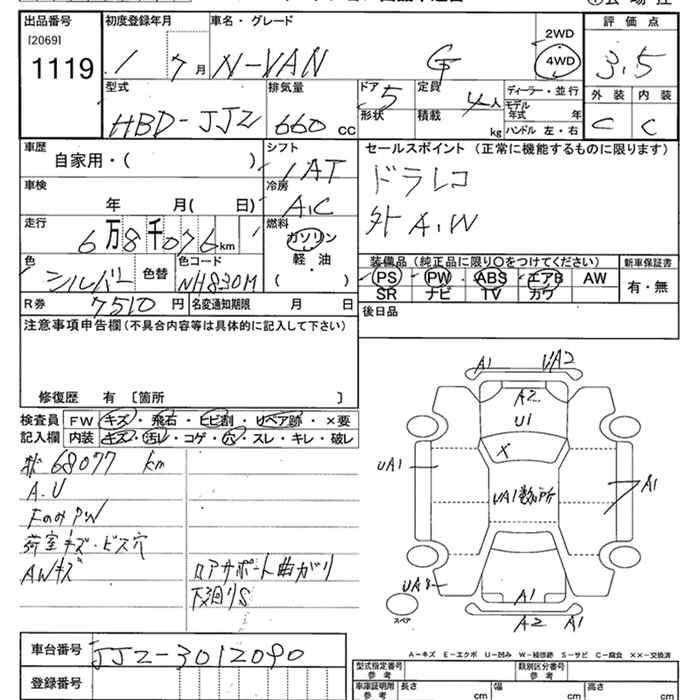 出品番号
[2069]
1119
初度登録年月
1 7月
車名・グレード
N-VAN G
2WD
4WD
評価点
3.5
型式
HBD-JJ2
排気量
660 cc
ドア 5
形状
定員 4人
積載 kg
ディーラー・並行
モデル年式 年式
ハンドル 左・右
外装 内装
C C
車歴
自家用・( )
シフト
1AT
セールスポイント(正常に機能するものに限ります)
ドラレコ
外A.W
車検
年 月( 日)
冷房
A.C
走行
6万8千076km
燃料
ガソリン
軽・油
( )
色
シルバー
色替
色コード
NH830M
装備品(純正品に限り○をつけてください)
PS PW ABS エアB AW
SR ナビ TV カワ
新車保証書
有・無
R券 7510円
名変通知期限 月 日
後日品
注意事項申告欄(不具合内容等は具体的に記入して下さい)
修復歴 有 [箇所 ]
検査員記入欄
FW キズ・飛石・ヒビ割・リペア跡・×要
内装 キズ・汚レ・コゲ・穴・スレ・キレ・破レ
68077 km
A.U
FのみPW
荷室キズ・ビス穴
AWキズ
ロアサポート曲がり
下廻りS
A1 UA2
A2
U1
X
UA1
UA1数ヶ所
A1
UA1
A2 A1
スペア
A-キズ E-エクボ U-凹み W-補修跡 S-サビ C-腐食 XX-交換済
車台番号
JJ2-3012090
登録番号
型式指定番号 類別区分番号
参考
車庫証明用 長さ cm 幅 cm 高さ cm
参考